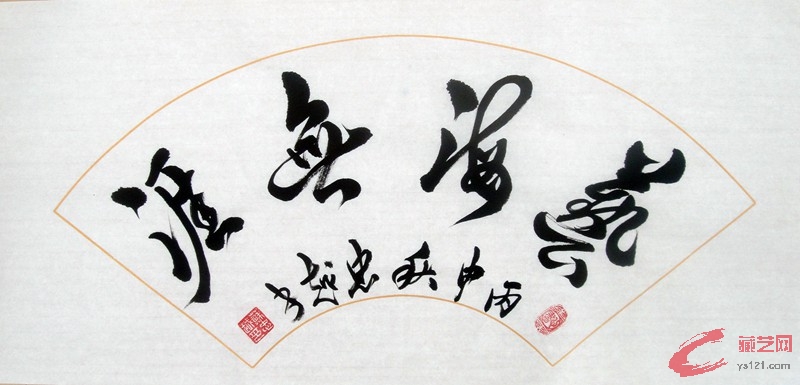 藝海無涯
丙申秋忠越书
藏艺网
ys121.com